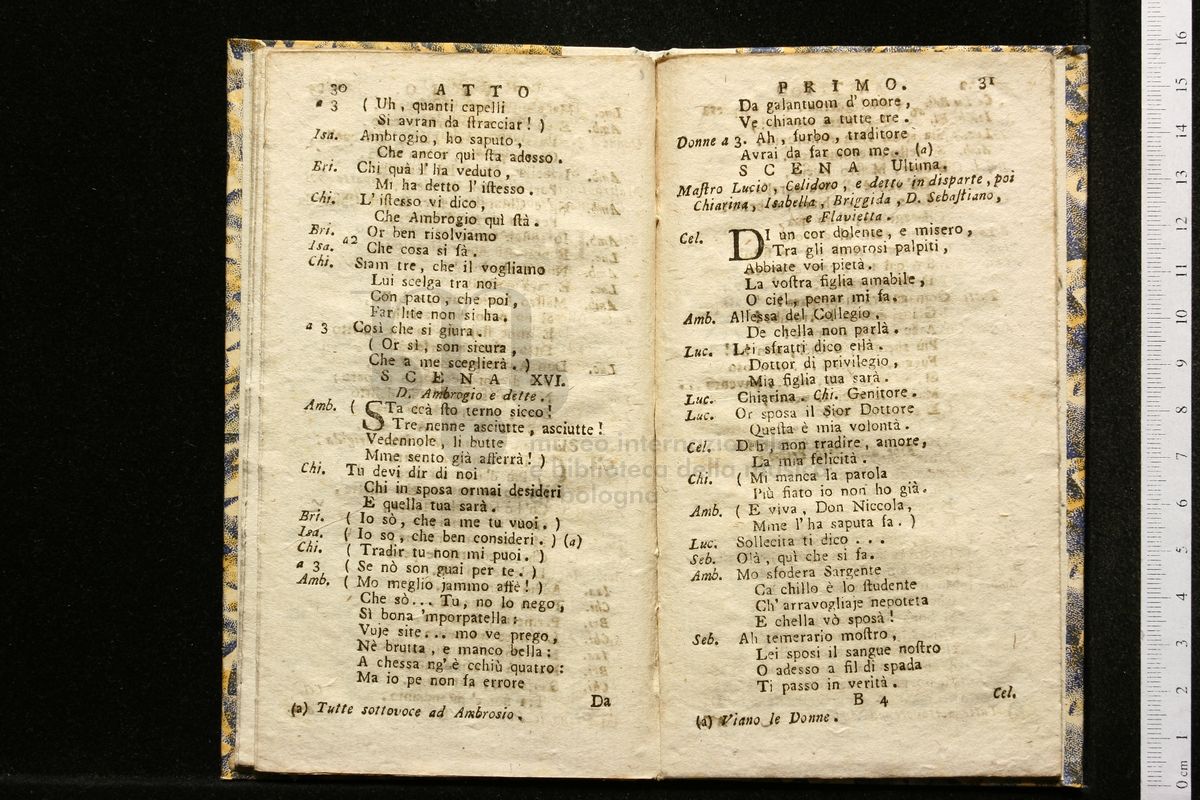 30 ATTO
a 3 ( Uh, quanti capelli
Si avran da ſtracciar! )
Isa. Ambrogio, ho saputo,
Che ancor quì ſta adosso.
Bri. Chi quà l'ha veduto,
Mi ha detto l'iſtesso.
Chi. L'iſtesso vi dico,
Che Ambrogio quì ſtà.
Bri. Or ben risolviamo
Isa. a2 Che cosa si fà.
Chi. Siam tre, che il vogliamo
Lui scelga tra noi
Con patto, che poi,
Far lite non si ha.
a 3 Così che si giura.
( Or sì, son sicura,
Che a me sceglierà. )
SCENA XVI.
D. Ambrogio e dette.
Amb. ( STa ccà ſto terno sicco!
Tre nenne asciutte, asciutte!
Vedennole, li butte
Mme sento già afferrà! )
Chi. Tu devi dir di noi
Chi in sposa ormai desideri
E quella tua sarà.
Bri. ( Io sò, che a me tu vuoi. )
Isa. ( Io so, che ben consideri. ) (a)
Chi. ( Tradir tu non mi puoi. )
a 3 ( Se nò son guai per te. )
Amb. ( Mo meglio jammo affè! )
Che sò... Tu, no lo nego,
Sì bona 'mporpatella:
Vuje site... mo ve prego,
Nè brutta, e manco bella:
A chessa ng'è cchiù quatro:
Ma io pe non fa errore
Da
(a) Tutte sottovoce ad Ambrosio.
PRIMO. 31
Da galantuom d'onore,
Ve chianto a tutte tre.
Donne a 3. Ah, furbo, traditore
Avrai da far con me. (a)
SCENA Ultima.
Maſtro Lucio, Celidoro, e detto in disparte, poi
Chiarina, Isabella, Briggida, D. Sebaſtiano,
e Flavietta.
Cel. DI un cor dolente, e misero,
Tra gli amorosi palpiti,
Abbiate voi pietà.
La voſtra figlia amabile,
O ciel, penar mi fa.
Amb. Allessa del Collegio.
De chella non parlà.
Luc. Lei sfratti dico eilà.
Dottor di privilegio,
Mia figlia tua sarà.
Luc. Chiarina. Chi. Genitore.
Luc. Or sposa il Sior Dottore
Queſta è mia volontà.
Cel. Deh, non tradire, amore,
La mia felicità.
Chi. ( Mi manca la parola
Più fiato io non ho già.
Amb. ( E viva, Don Niccola,
Mme l'ha saputa fa. )
Luc. Sollecita ti dico ...
Seb. Olà, quì che si fa.
Amb. Mo sfodera Sargente
Ca chillo è lo ſtudente
Ch'arravogliaje nepoteta
E chella vò sposà!
Seb. Ah temerario moſtro,
Lei sposi il sangue noſtro
O adesso a fil di spada
Ti passo in verità.
B 4 Cel.
(a) Viano le Donne.
museo internazionale
e biblioteca della musica
bologna
0 cm 1 2 3 4 5 6 7 8 9 10 11 12 13 14 15 16